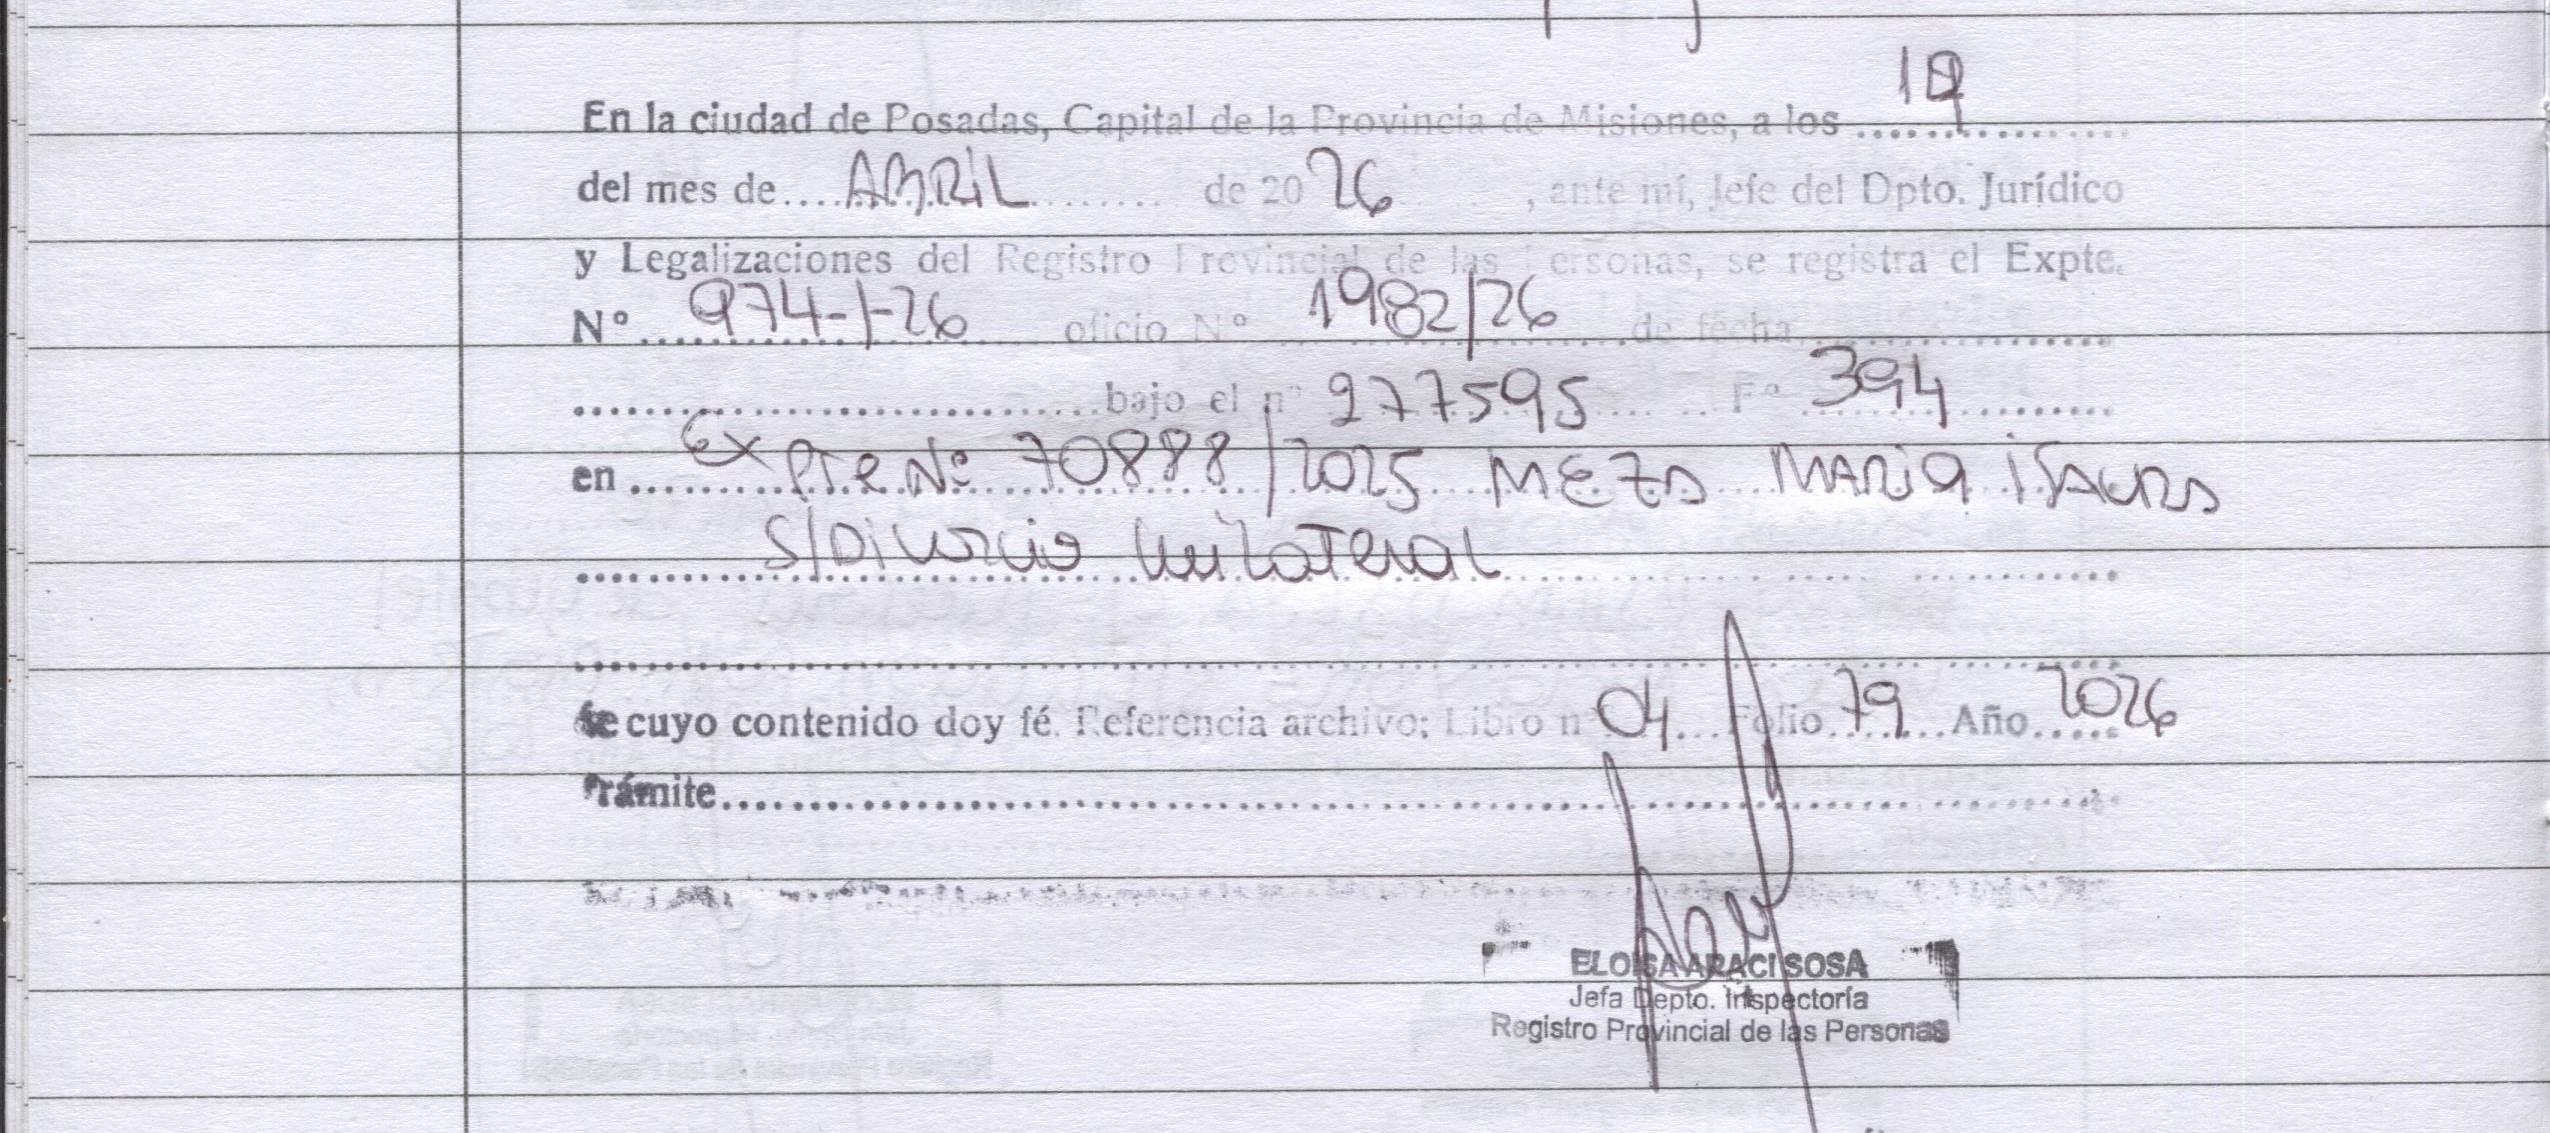 En la ciudad de Posadas, Capital de la Provincia de Misiones, a los
del mes de.... ABRIL de 20 26 , ante mí, Jefe del Dpto. Jurídico
y Legalizaciones del Registro Provincial de las Personas, se registra el Expte.
N° 974-I-26 oficio N° 1982/26 de fecha
bajo el n° 277595 F° 394
en Expte Nº 70888/2025 MEZA MARIA ISAURA
S/Divorcio Unilateral
de cuyo contenido doy fé. Referencia archivo: Libro n° 04 Folio 79 Año 2026
Trámite
ELOISA ARACI SOSA
Jefa Depto. Inspectoría
Registro Provincial de las Personas